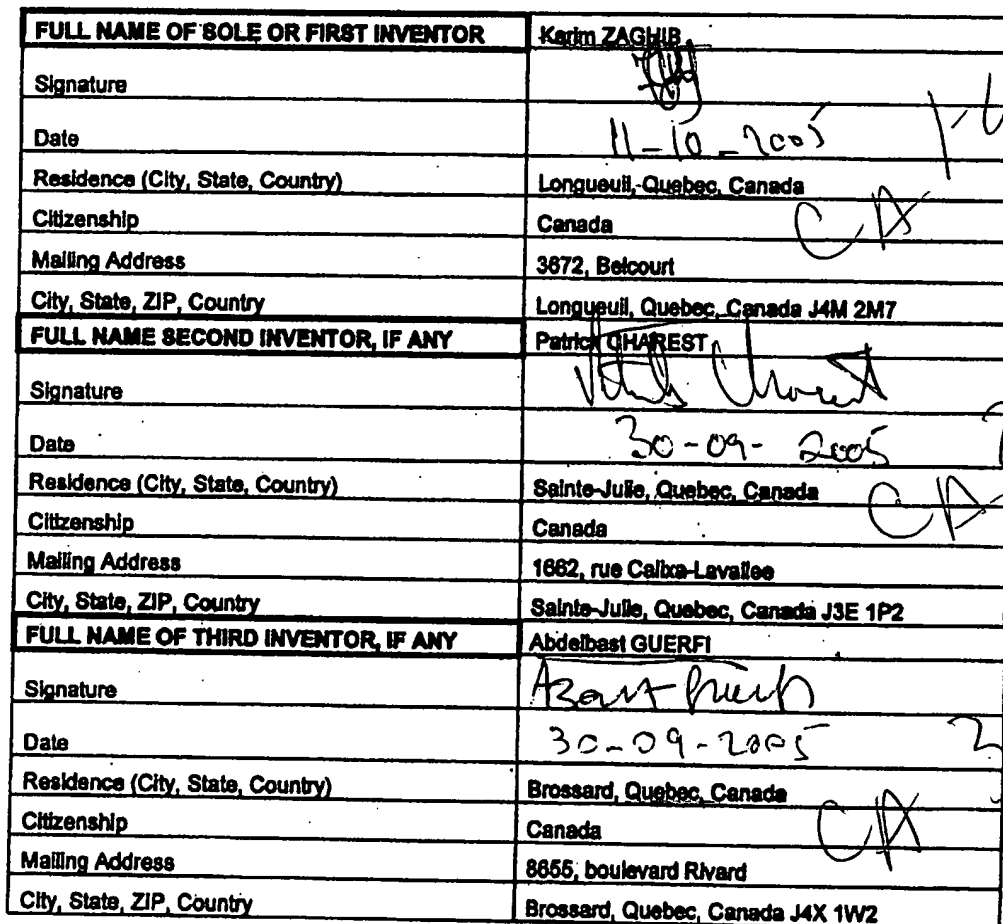 FULL NAME OF SOLE OR FIRST INVENTOR Karim ZAGHIB
Signature
Date 11-10-2005
Residence (City, State, Country) Longueuil, Quebec, Canada
CA
Citizenship Canada
Mailing Address 3672, Belcourt
City, State, ZIP, Country Longueuil, Quebec, Canada J4M 2M7
FULL NAME SECOND INVENTOR, IF ANY Patrick CHAREST
Signature Charest
Date 30-09-2005
Residence (City, State, Country) Sainte-Julie, Quebec, Canada
CA
Citizenship Canada
Mailing Address 1662, rue Calixa-Lavallee
City, State, ZIP, Country Sainte-Julie, Quebec, Canada J3E 1P2
FULL NAME OF THIRD INVENTOR, IF ANY Abdelbast GUERFI
Signature
Date 30-09-2005
Residence (City, State, Country) Brossard, Quebec, Canada
CA
Citizenship Canada
Mailing Address 8655, boulevard Rivard
City, State, ZIP, Country Brossard, Quebec, Canada J4X 1W2